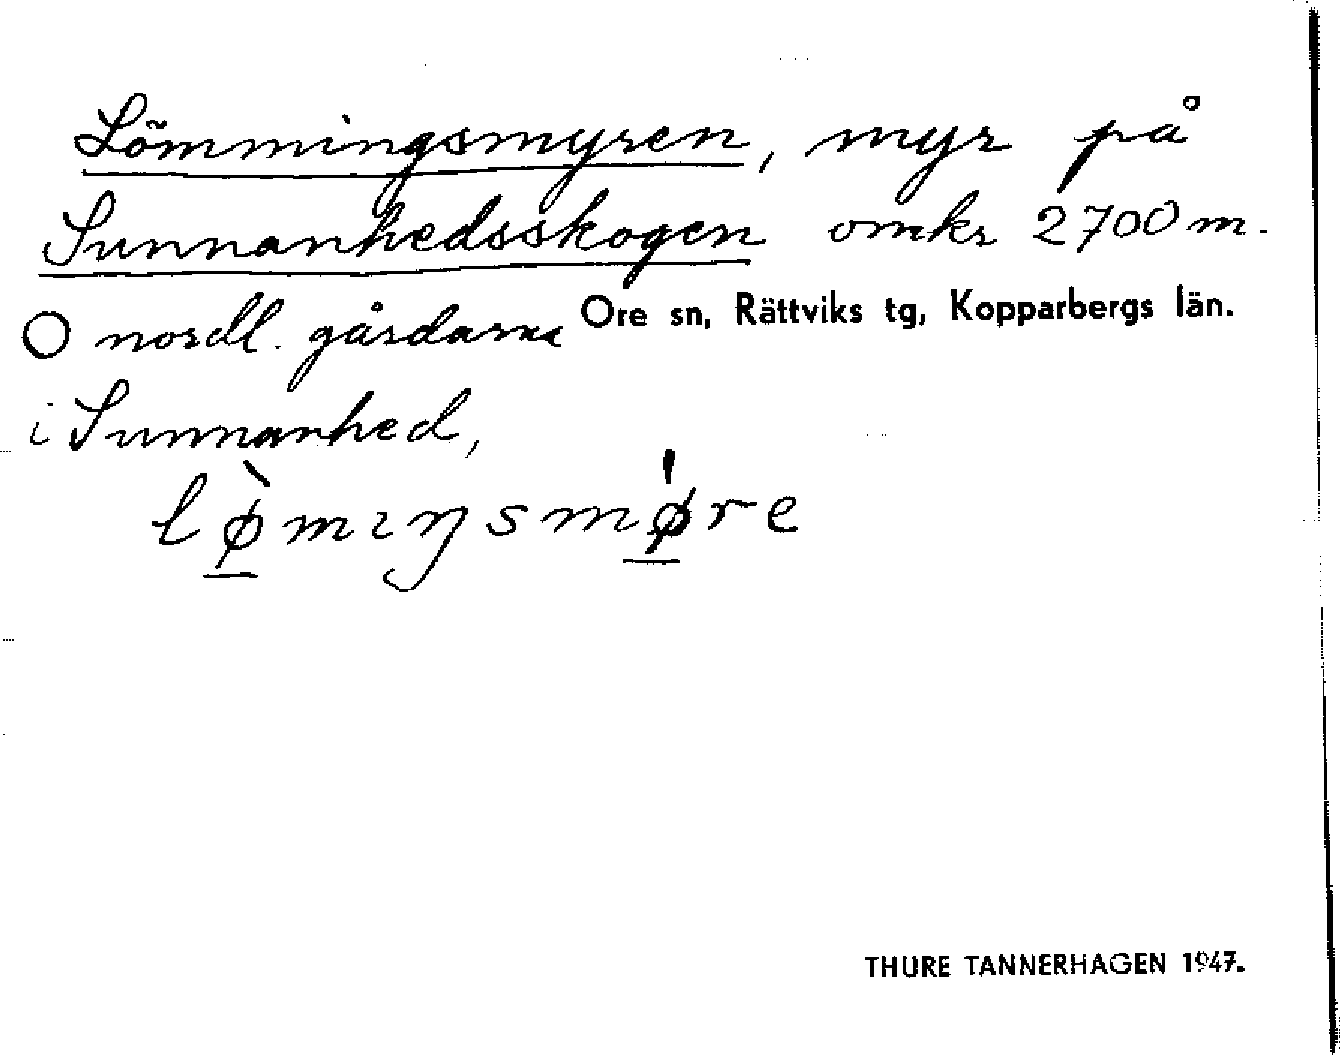 Lömmingsmyren, myr på
Sunnanhedsskogen omkr 2700 m.
O nordl. gårdarna Ore sn, Rättviks tg, Kopparbergs län.
i Sunnanhed,
lø̀mɪŋsmǿre
THURE TANNERHAGEN 1947.